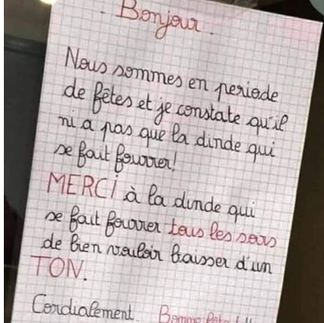 - Bonjour -
Nous sommes en periode
de fêtes et je constate qu'il
ni a pas que la dinde qui
se fait fourrer!
MERCi à la dinde qui
se fait fourrer tous les soirs
de bien vouloir baisser d'un
TON.
Cordialement Bonne